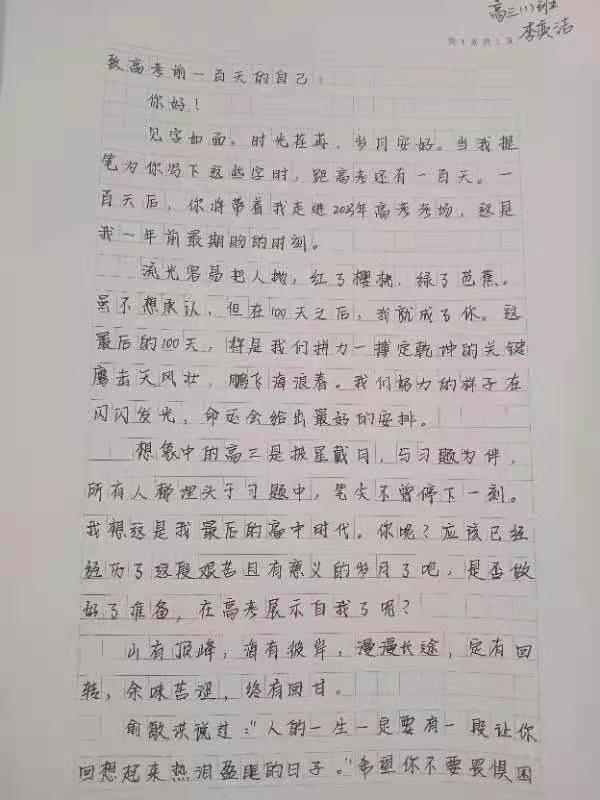 高三(1)班
李奕洁
第1页共2页
致高考前一百天的自己:
你好!
见字如面。时光荏苒,岁月安好。当我提
笔为你写下这些字时,距高考还有一百天。一
百天后,你将带着我走进2023年高考考场,这是
我一年前最期盼的时刻。
流光容易把人抛,红了樱桃,绿了芭蕉。
虽不想承认,但在100天之后,我就成了你。这
最后的100天,将是我们拼力一搏定乾坤的关键
鹰击天风壮,鹏飞海浪春。我们努力的样子在
闪闪发光,命运会给出最好的安排。
想象中的高三是披星戴月,与习题为伴,
所有人都埋头于习题中,笔尖不曾停下一刻。
我想这是我最后的高中时代。你呢?应该已经
经历了这段艰苦且有意义的岁月了吧,是否做
好了准备,在高考展示自我了呢?
山有顶峰,海有彼岸,漫漫长途,定有回
转,余味苦涩,终有回甘。
俞敏洪说过:"人的一生一定要有一段让你
回想起来热泪盈眶的日子。"希望你不要畏惧困